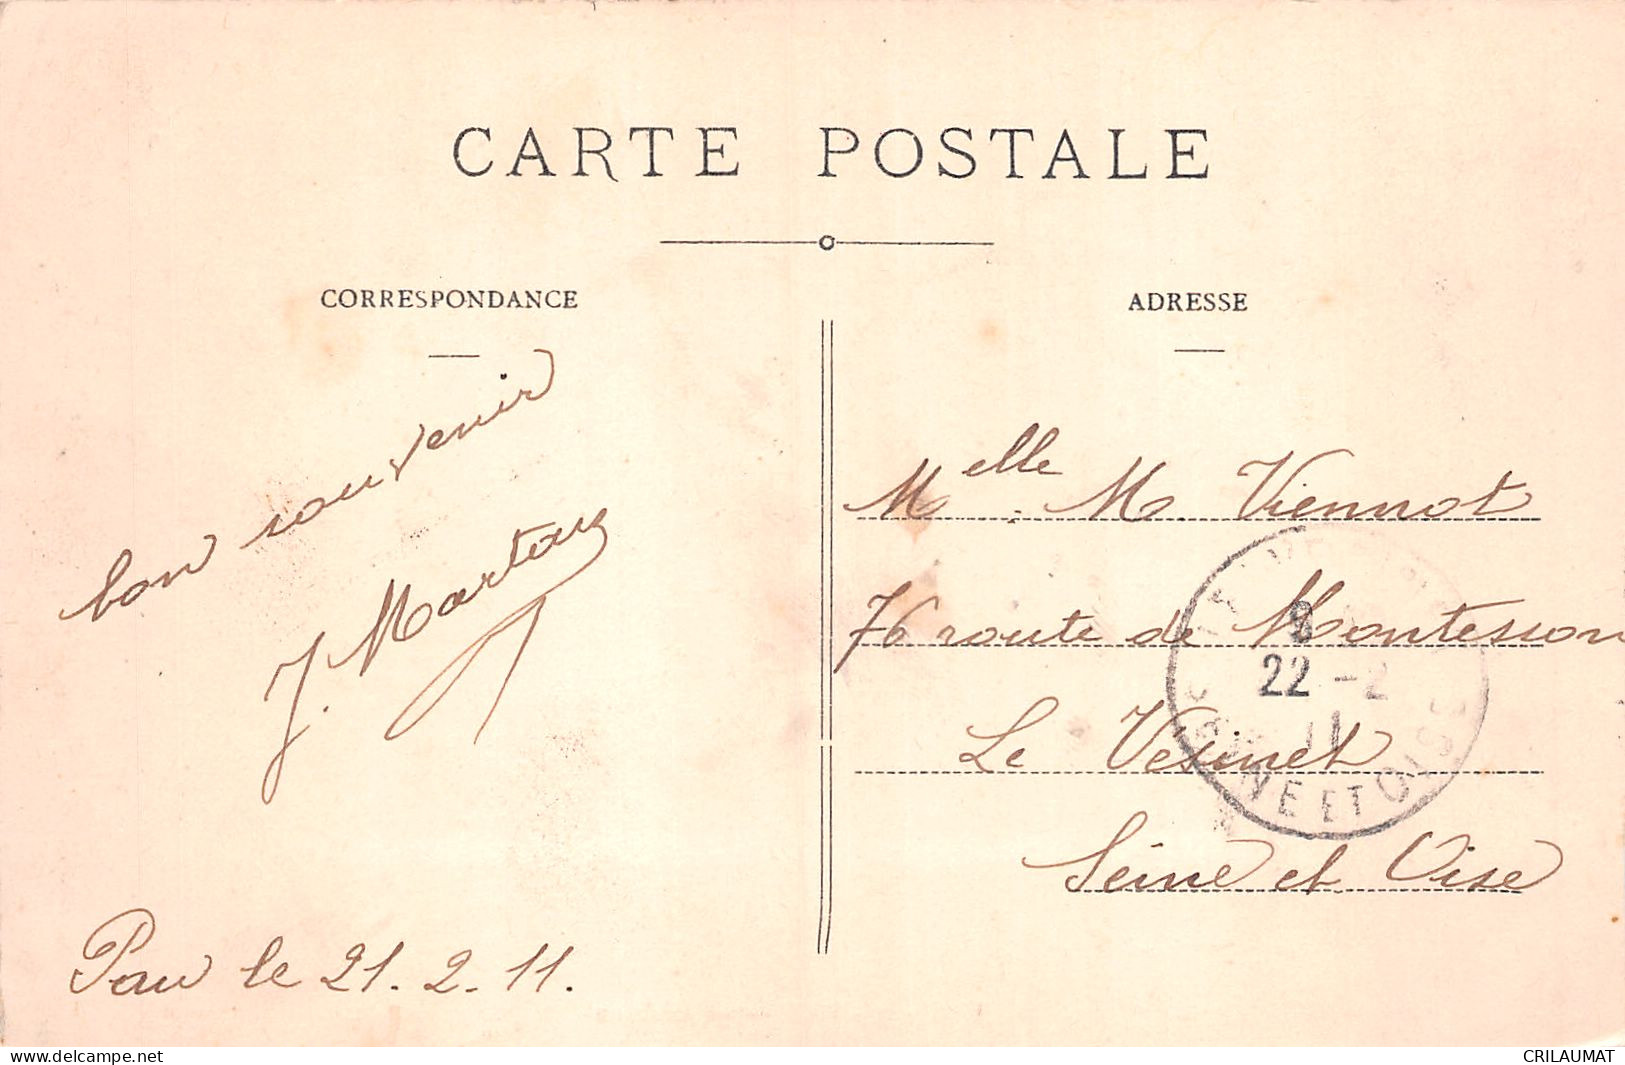 CARTE POSTALE
CORRESPONDANCE
ADRESSE
bon souvenir
J. Martou
Pau le 21. 2. 11.
Melle. M. Viennot
76 route de Montesson
Le Vésinet
Seine et Oise
8
22 -2
11
SEINE ET OISE
www.delcampe.net
CRILAUMAT